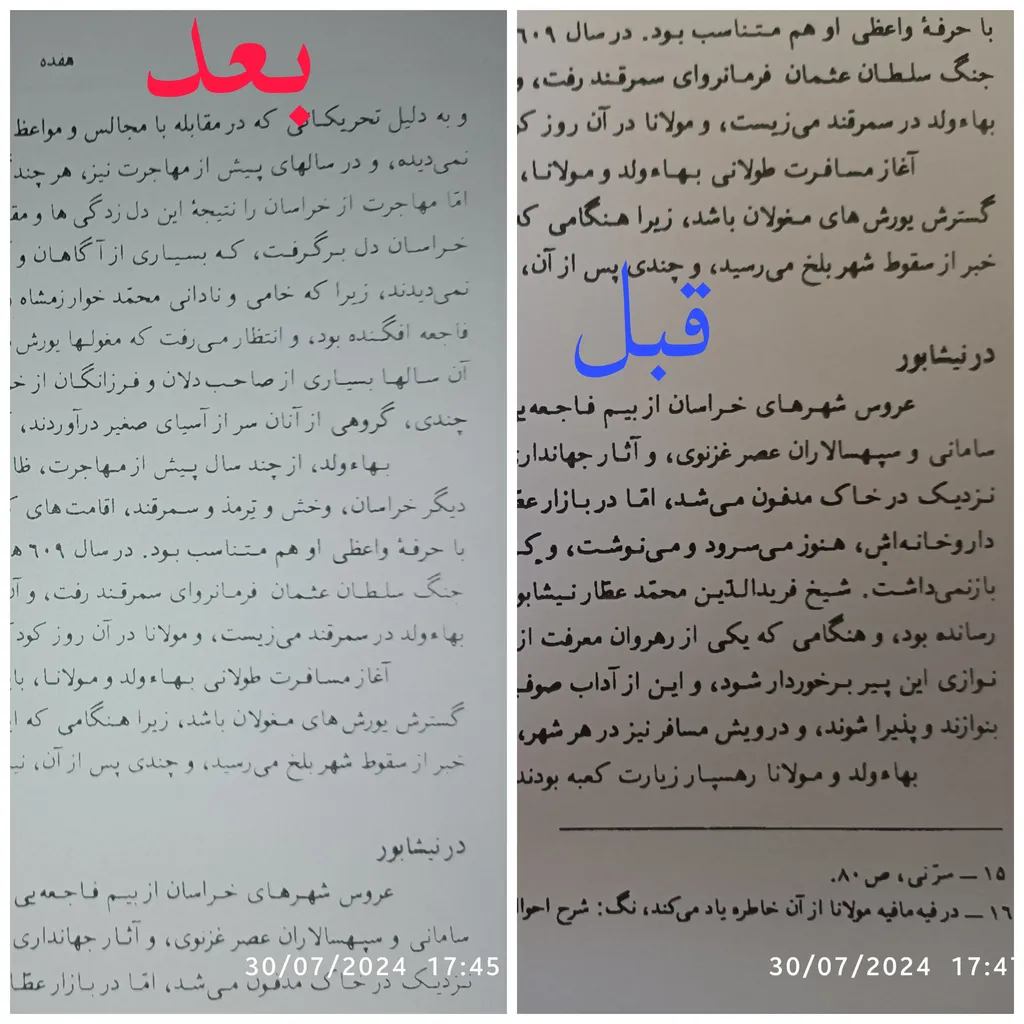 بعد
هفده
و به دلیل تحریکاتی که در مقابله با مجالس و مواعظ
نمی‌دیده، و در سالهای پیش از مهاجرت نیز، هر چند
امّا مهاجرت از خراسان را نتیجهٔ این دل زدگی ها و
خراسان دل برگرفت، که بسیاری از آگاهان و
نمی‌دیدند، زیرا که خامی و نادانی محمّد خوارزمشاه
فاجعه افگنده بود، و انتظار می‌رفت که مغولها یورش
آن سالها بسیاری از صاحب‌دلان و فرزانگان از
چندی، گروهی از آنان سر از آسیای صغیر درآوردند،
بهاءولد، از چند سال پیش از مهاجرت،
دیگر خراسان، وخش و تِرمذ و سمرقند، اقامت‌های
با حرفهٔ واعظی او هم متناسب بود. در سال ۶۰۹
جنگ سلطان عثمان فرمانروای سمرقند رفت، و
بهاءولد در سمرقند می‌زیست، و مولانا در آن روز
آغاز مسافرت طولانی بهاءولد و مولانا،
گسترش یورش‌های مغولان باشد، زیرا هنگامی که
خبر از سقوط شهر بلخ می‌رسید، و چندی پس از آن،
در نیشابور
عروس شهرهای خراسان از بیم فاجعه‌یی
سامانی و سپهسالاران عصر غزنوی، و آثار جهانداری
نزدیک در خاک مدفون می‌شد، امّا در بازار
30/07/2024 17:45
با حرفهٔ واعظی او هم متناسب بود. در سال ۶۰۹
جنگ سلطان عثمان فرمانروای سمرقند رفت، و
بهاءولد در سمرقند می‌زیست، و مولانا در آن روز
آغاز مسافرت طولانی بهاءولد و مولانا،
گسترش یورش‌های مغولان باشد، زیرا هنگامی
خبر از سقوط شهر بلخ می‌رسید، و چندی پس از آن،
قبل
در نیشابور
عروس شهرهای خراسان از بیم
سامانی و سپهسالاران عصر غزنوی، و آثار
نزدیک در خاک مدفون می‌شد، امّا در بازار
داروخانه‌اش، هنوز می‌سرود و می‌نوشت،
بازنمی‌داشت. شیخ فریدالدّین محمّد عطّار
رسانده بود، و هنگامی که یکی از رهروان معرفت از
نوازی این پیر برخوردار شود، و این از آداب
بنوازند و پذیرا شوند، و درویش مسافر نیز در هر شهر،
بهاءولد و مولانا رهسپار زیارت کعبه بودند
۱۵ — سرّنی، ص ۸۰.
۱۶ — در فیه مافیه مولانا از آن خاطره یاد می‌کند، نگ: شرح
30/07/2024